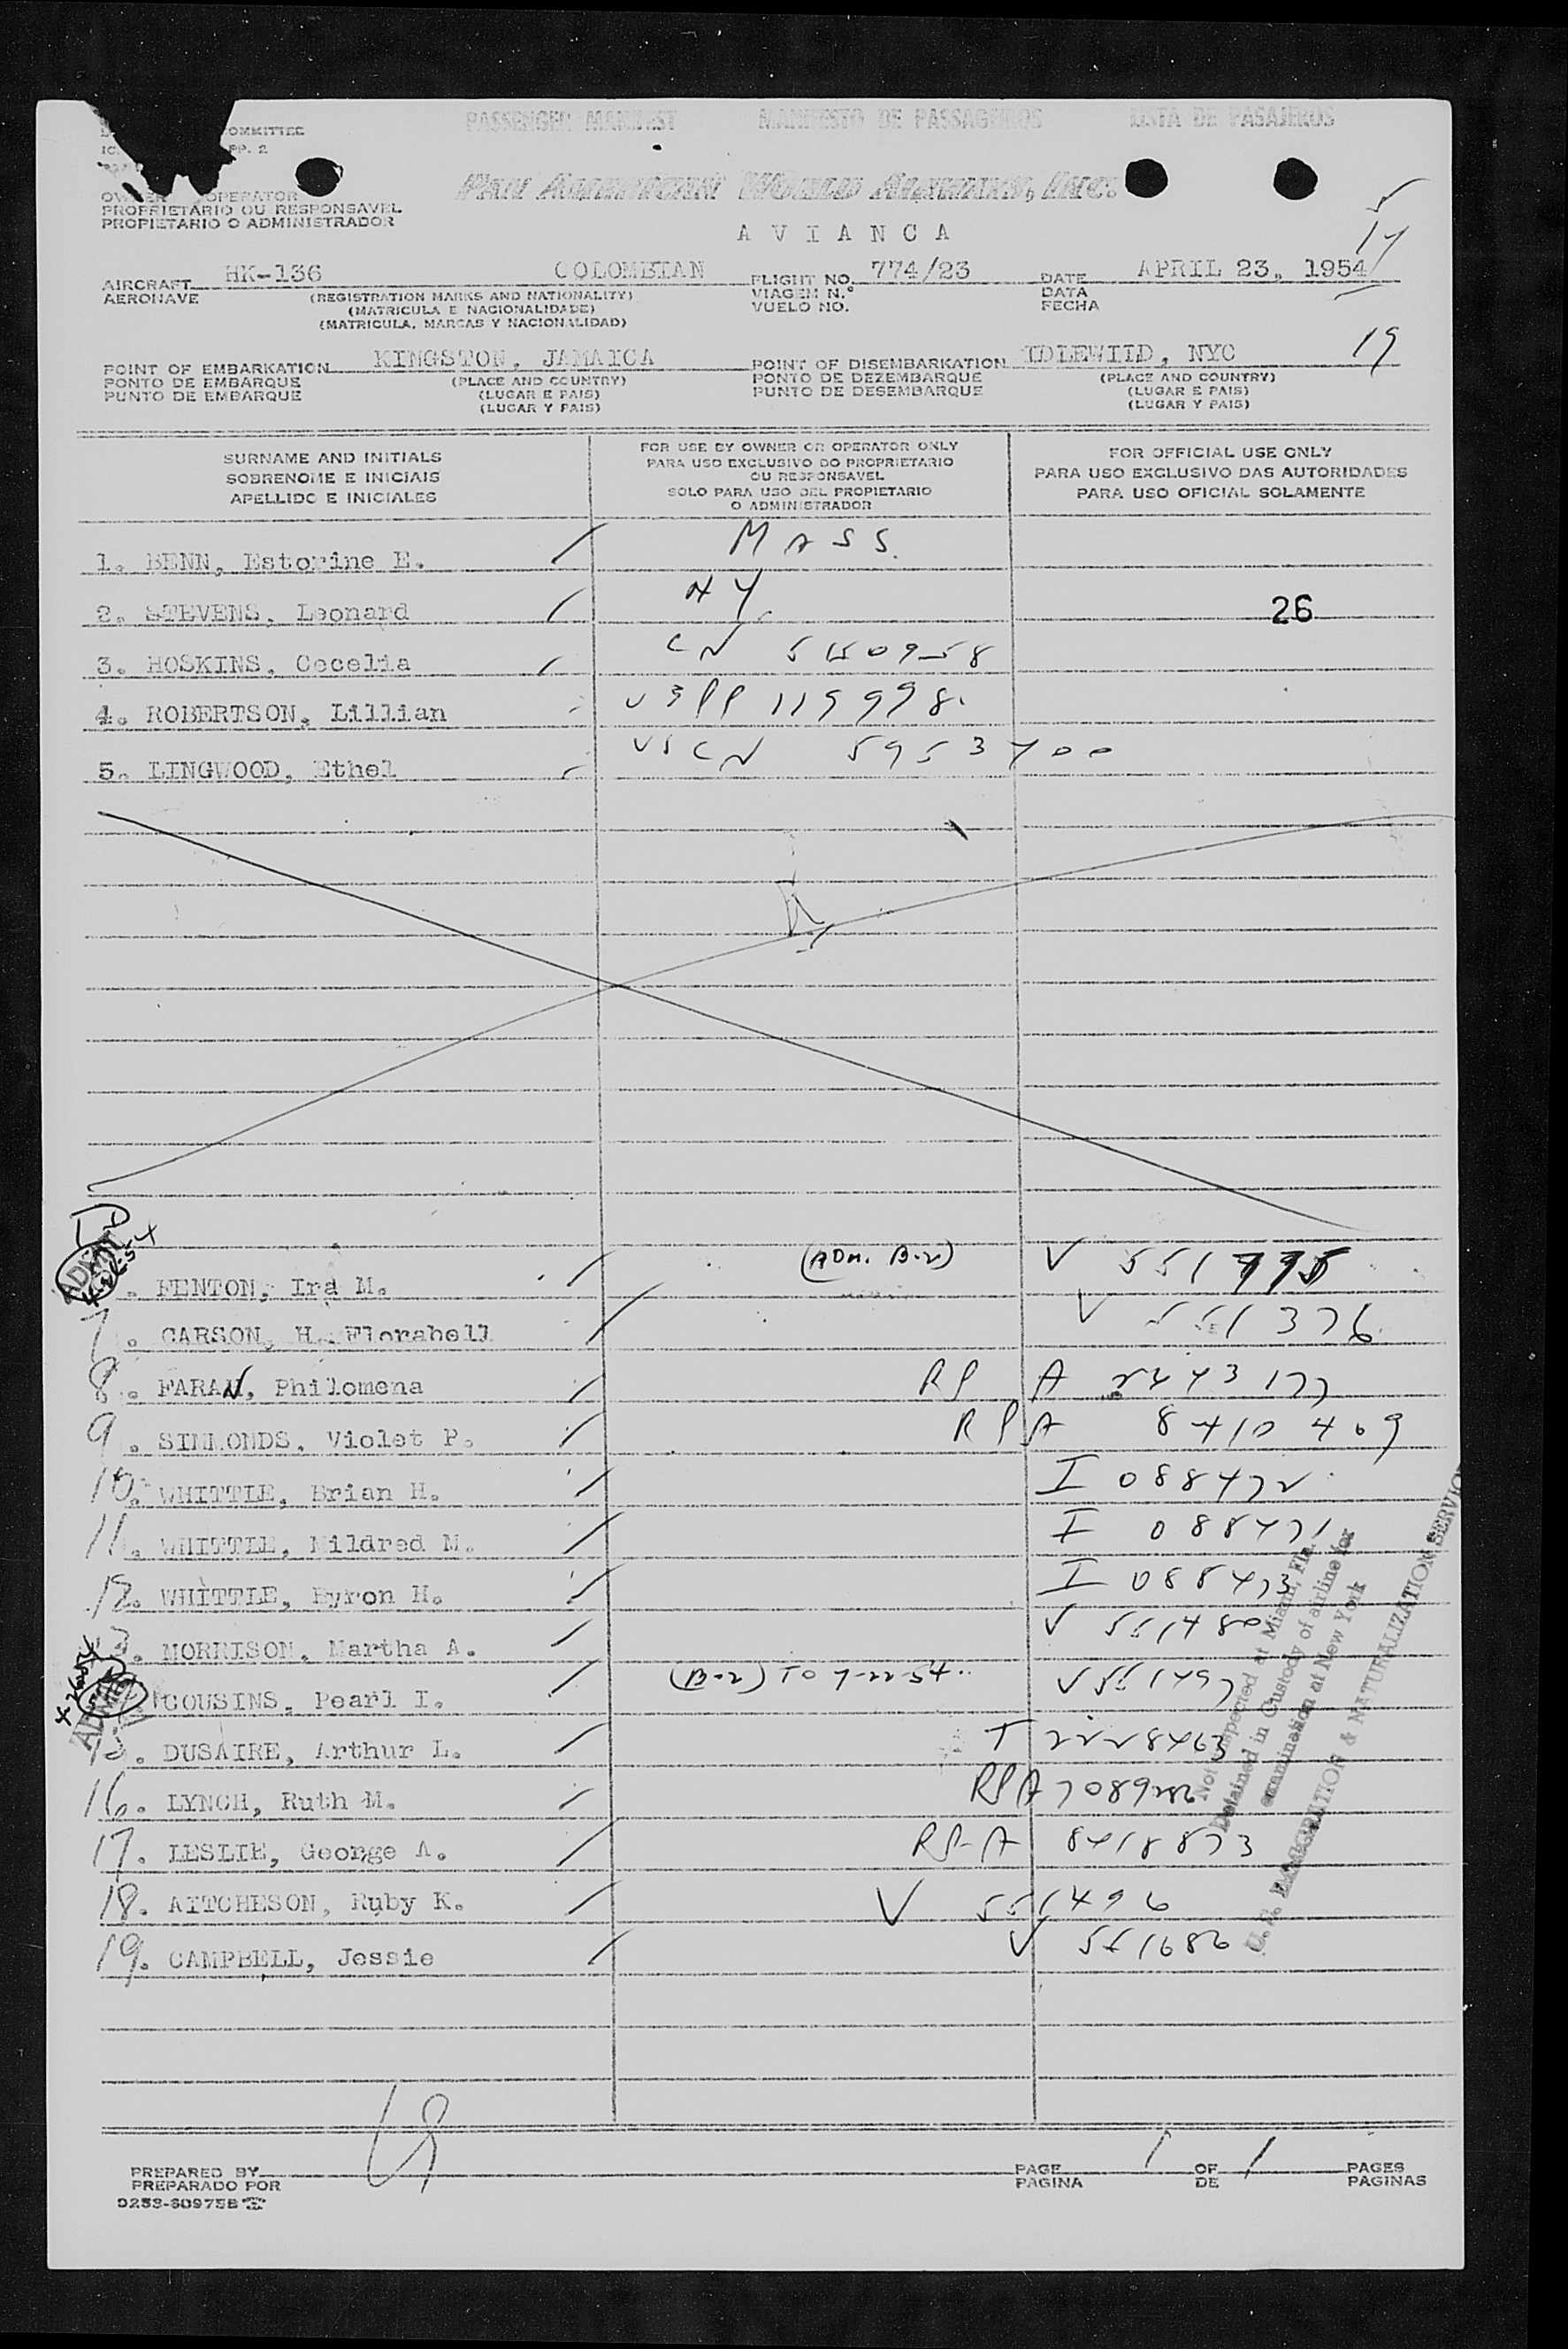 OMMITTEE
PP. 2
PASSENGER MANIFEST MANIFESTO DE PASSAGEIROS LISTA DE PASAJEROS
PAN AMERICAN WORLD AIRWAYS, INC.
OPERATOR
PROPRIETARIO OU RESPONSAVEL
PROPIETARIO O ADMINISTRADOR
A V I A N C A
5
14
AIRCRAFT HK-136 COLOMBIAN FLIGHT NO. 774/23 DATE APRIL 23, 1954
AERONAVE (REGISTRATION MARKS AND NATIONALITY) VIAGEM N.º DATA
(MATRICULA E NACIONALIDADE) VUELO NO. FECHA
(MATRICULA, MARCAS Y NACIONALIDAD)
19
POINT OF EMBARKATION KINGSTON, JAMAICA POINT OF DISEMBARKATION IDLEWIID, NYC
PONTO DE EMBARQUE (PLACE AND COUNTRY) PONTO DE DEZEMBARQUE (PLACE AND COUNTRY)
PUNTO DE EMBARQUE (LUGAR E PAIS) PUNTO DE DESEMBARQUE (LUGAR E PAIS)
(LUGAR Y PAIS) (LUGAR Y PAIS)
SURNAME AND INITIALS
SOBRENOME E INICIAIS
APELLIDO E INICIALES
FOR USE BY OWNER OR OPERATOR ONLY
PARA USO EXCLUSIVO DO PROPRIETARIO
OU RESPONSAVEL
SOLO PARA USO DEL PROPIETARIO
O ADMINISTRADOR
FOR OFFICIAL USE ONLY
PARA USO EXCLUSIVO DAS AUTORIDADES
PARA USO OFICIAL SOLAMENTE
1. BENN, Estorine E. MASS.
2. STEVENS, Leonard NY. 26
3. HOSKINS, Cecelia CN
4. ROBERTSON, Lillian USPP 119998.
5. LINGWOOD, Ethel US CN 5953700
ADMIT
4-26-54
. FENTON, Ira M. (ADM. B-2) V
7. CARSON, H. Florabell V 551376
8. FARAN, Philomena RP A
9. SIMMONDS, Violet P. RP A 8410409
10. WHITTLE, Brian H. I 088472
11. WHITTLE, Mildred M. I 088471
12. WHITTLE, Byron H. I 088473
3. MORRISON, Martha A. V 551480
COUSINS, Pearl I. (B-2) TO 7-22-54 V 551497
15. DUSAIRE, Arthur L. T 2228463
16. LYNCH, Ruth M. RP A
17. LESLIE, George A. RP-A 8418873
18. AITCHESON, Ruby K. V 551496
19. CAMPBELL, Jessie V 551686
Not inspected at Miami, Fla.
Detained in Custody of airline for
examination at New York
U.S. IMMIGRATION & NATURALIZATION SERVICE
PREPARED BY PAGE 1 OF 1 PAGES
PREPARADO POR PAGINA DE PAGINAS
0253-60975B